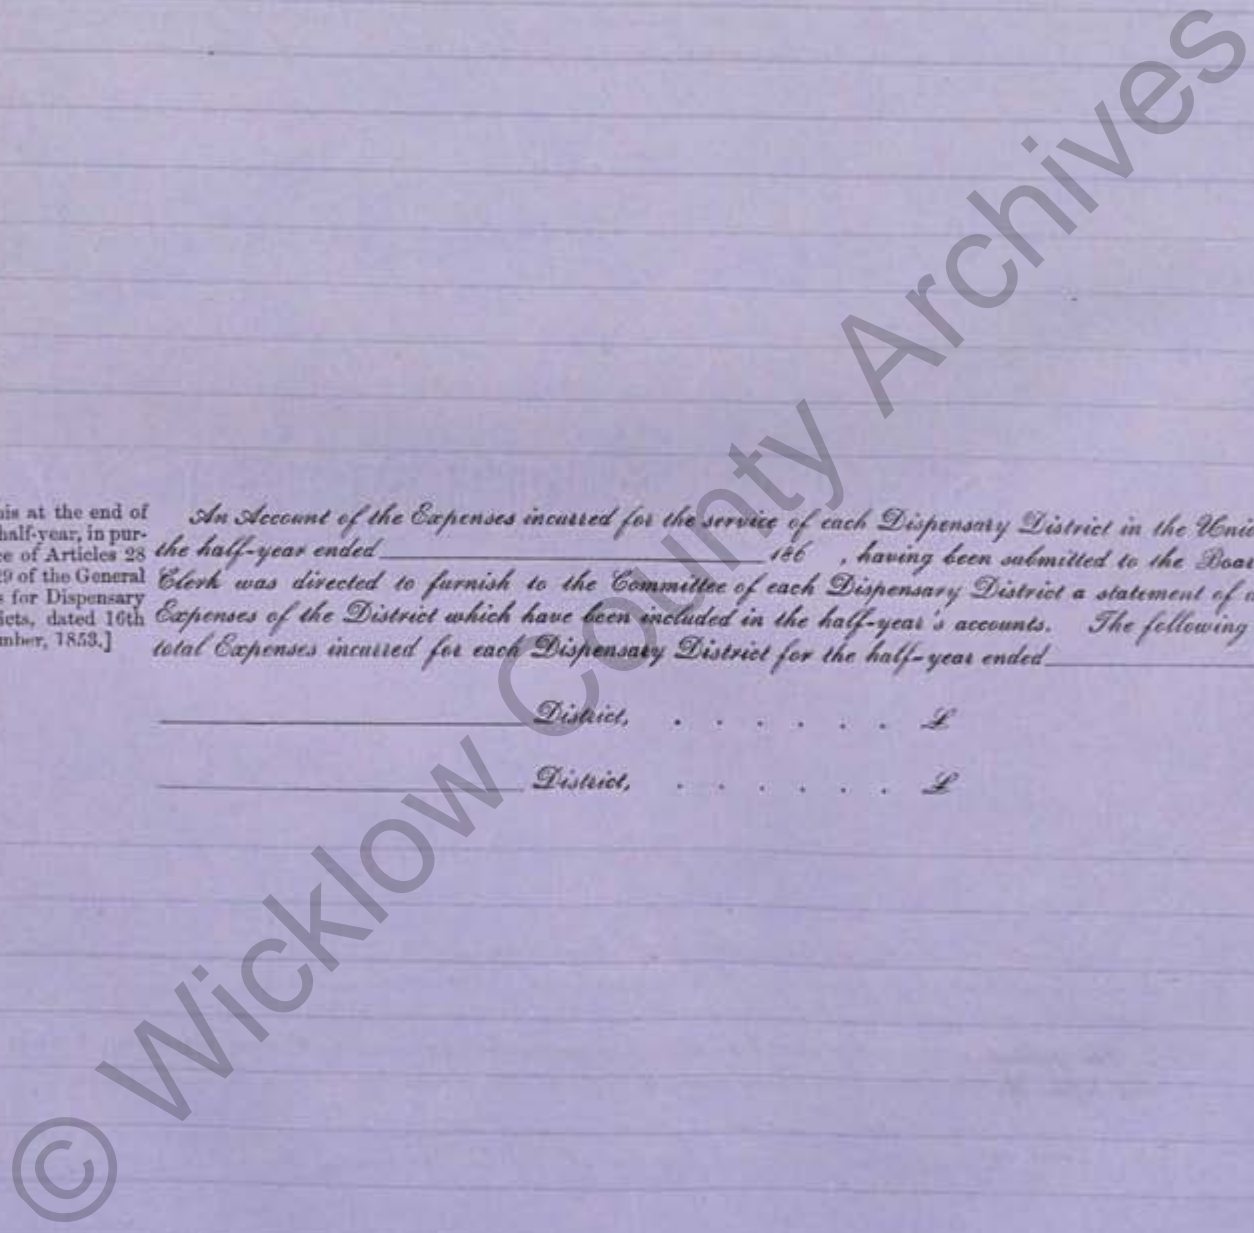 his at the end of
half-year, in pur-
ce of Articles 28
29 of the General
s for Dispensary
icts, dated 16th
mber, 1853.]
An Account of the Expenses incurred for the service of each Dispensary District in the Unio
the half-year ended 186 , having been submitted to the Boar
Clerk was directed to furnish to the Committee of each Dispensary District a statement of
Expenses of the District which have been included in the half-year's accounts. The following
total Expenses incurred for each Dispensary District for the half-year ended
District, . . . . . . £
District, . . . . . . £
© Wicklow County Archives